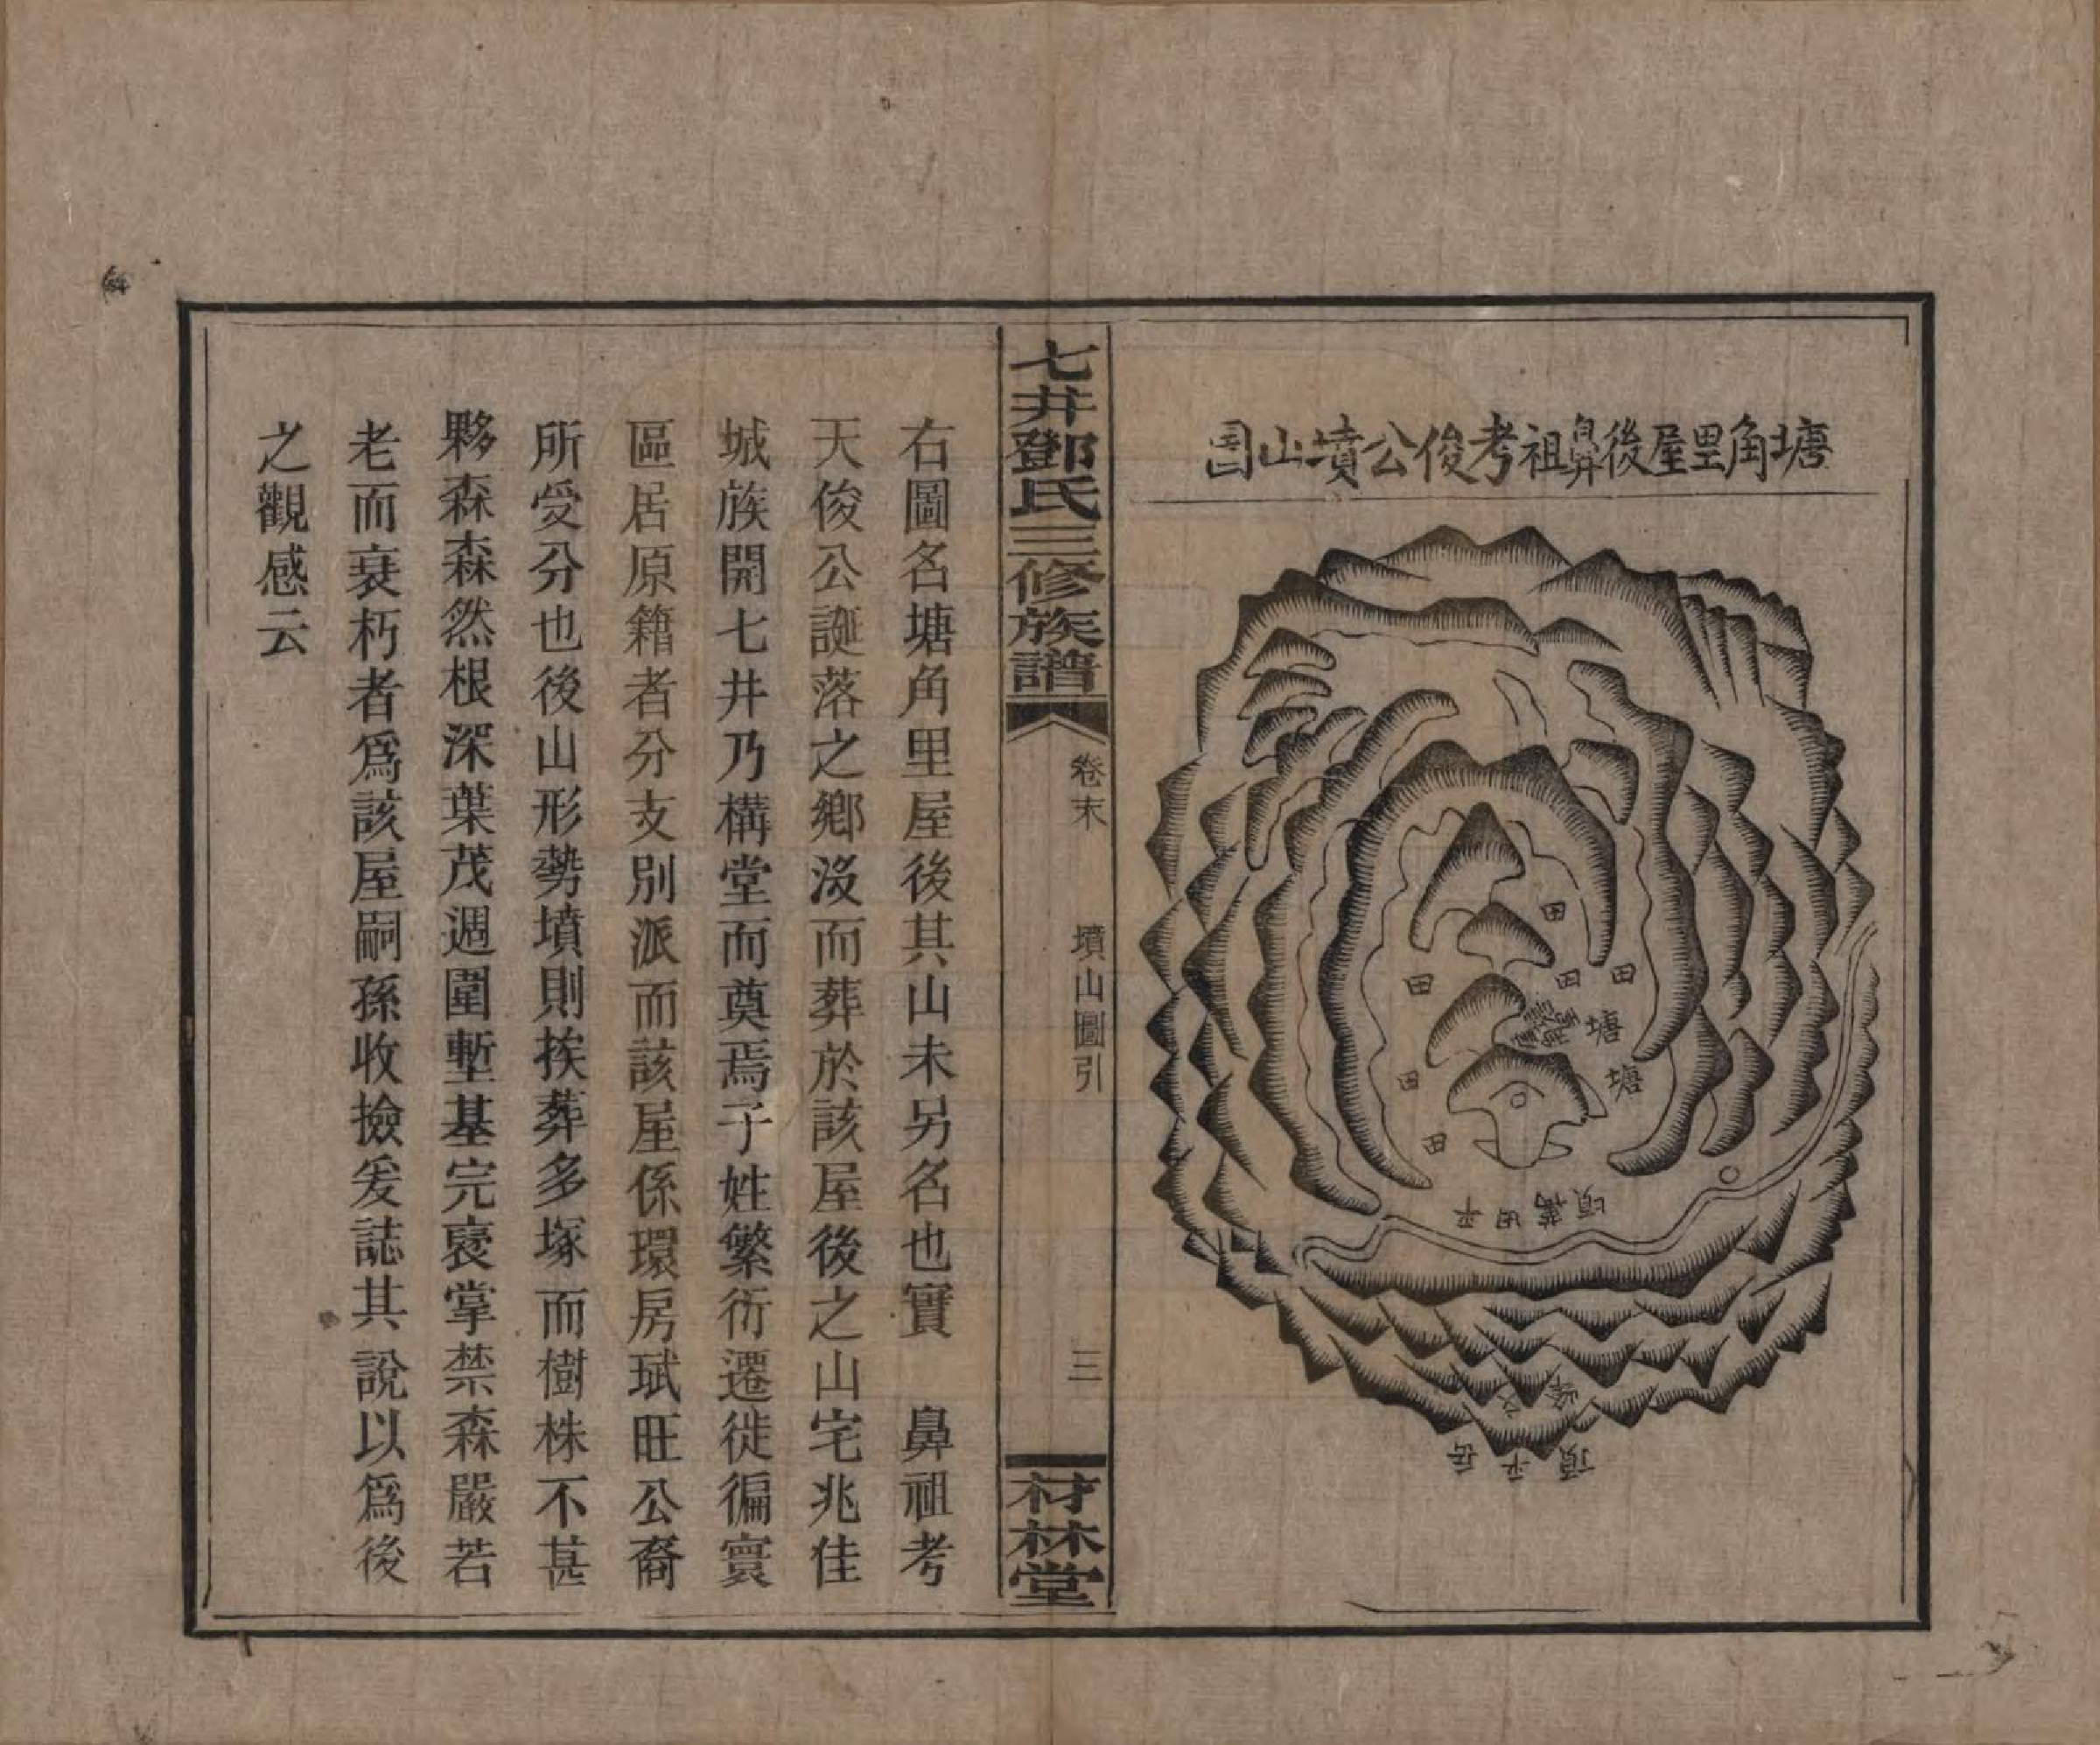 塘角里屋後鼻祖考俊公墳山圖
田
田
田
田
塘
塘
田
田
平田萬頃
岳平頂
七井鄧氏三修族譜
卷末
墳山圖引
三
材林堂
右圖名塘角里屋後其山未另名也實 鼻祖考
天俊公誕落之鄉沒而葬於該屋後之山宅兆佳
城族開七井乃構堂而奠焉子姓繁衍遷徙徧寰
區居原籍者分支別派而該屋係環房珷旺公裔
所受分也後山形勢墳則挨葬多塚而樹株不甚
夥森森然根深葉茂週圍塹基完裹掌禁森嚴若
老而衰朽者爲該屋嗣孫收撿爰誌其說以爲後
之觀感云